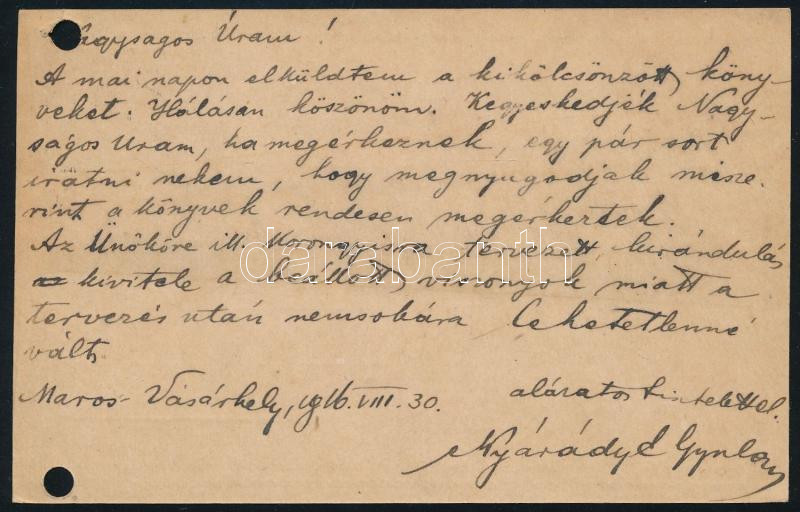 Nagyságos Uram!
A mai napon elküldtem a kikölcsönzött köny-
veket. Hálásan köszönöm. Kegyeskedjék Nagy-
ságos Uram, ha megérkeznek, egy pár sort
iratni nekem, hogy megnyugodjak misze-
rint a könyvek rendesen megérkeztek.
Az Ünőkőre ill. Korongyisra tervezett kirándulás
kivitele a beállott viszonyok miatt a
tervezés után nemsokára lehetetlenné
vált.
Maros-Vásárhely, 1916.VIII.30.
alázatos tisztelettel.
Nyárády E Gyula
darabanth